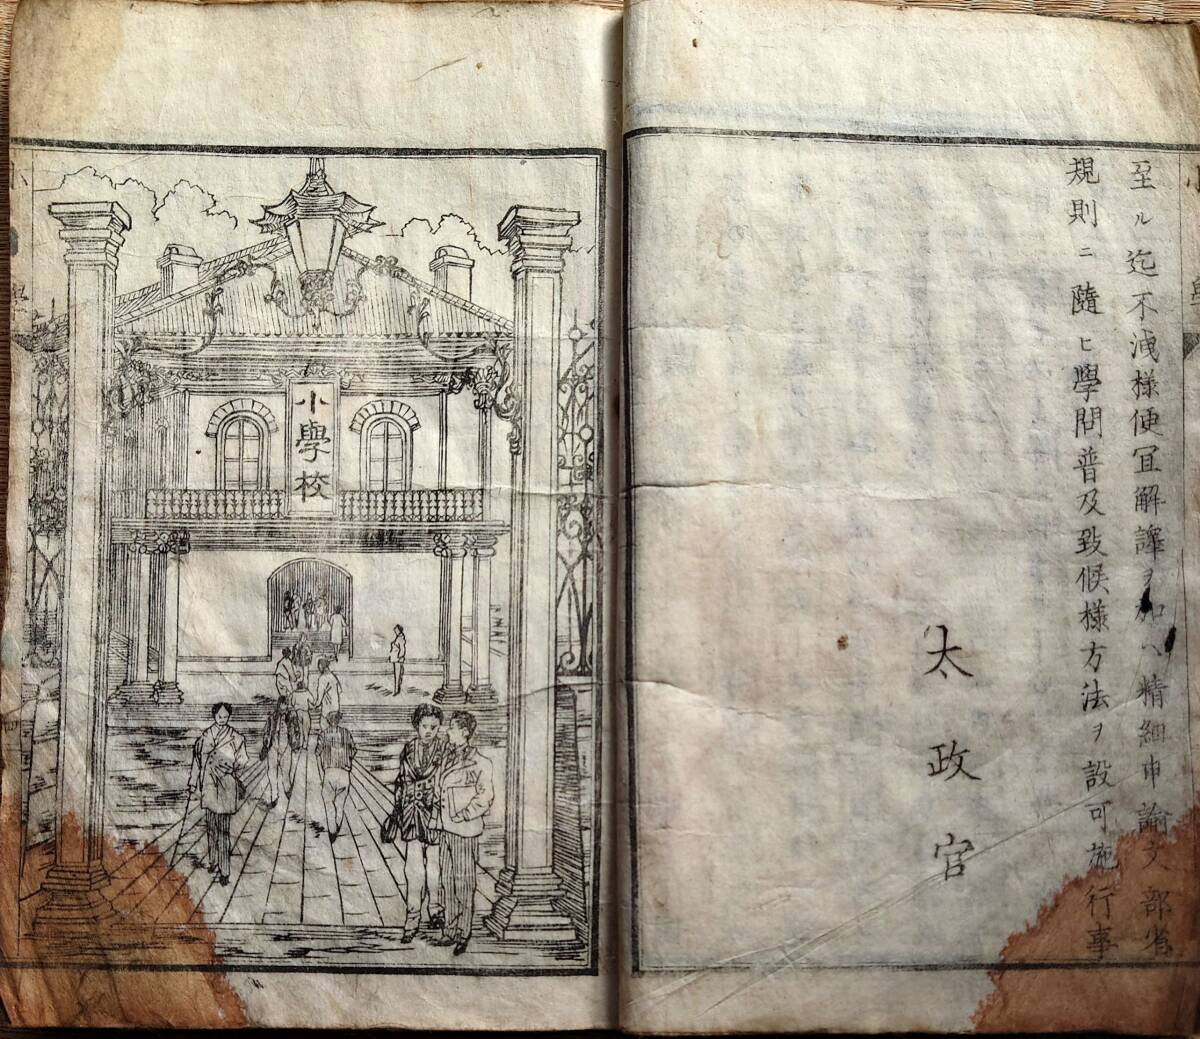 至ル迄不洩様便冝解譯ヲ加ヘ精細申諭文部省
規則ニ隨ヒ學問普及致候様方法ヲ設可施行事
太政官
小學校
小
四